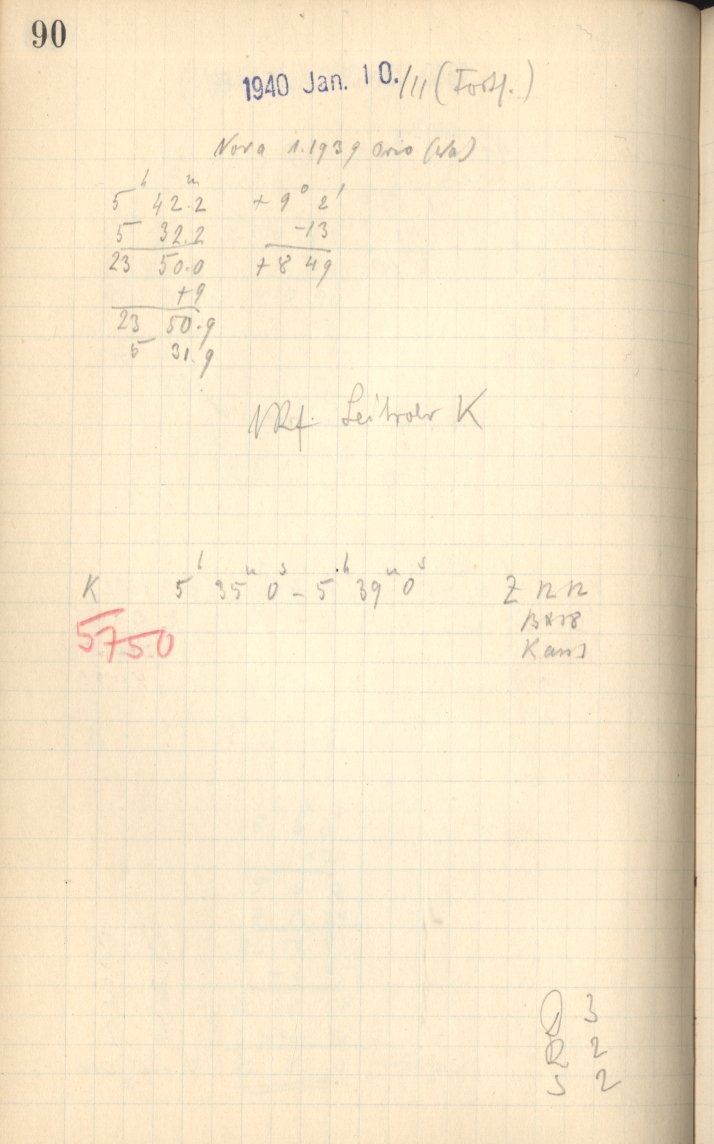 90
1940 Jan. 10./11 (Forts.)
Nova 1.1939
5h 42m.2 + 9° 2'
5 32.2 -13
23 50.0 +8 49
+9
23 50.9
5 31.9
Leitrohr K
K 5h 35m 0s - 5h 39m 0s Z
5750
D 3
R 2
S 2